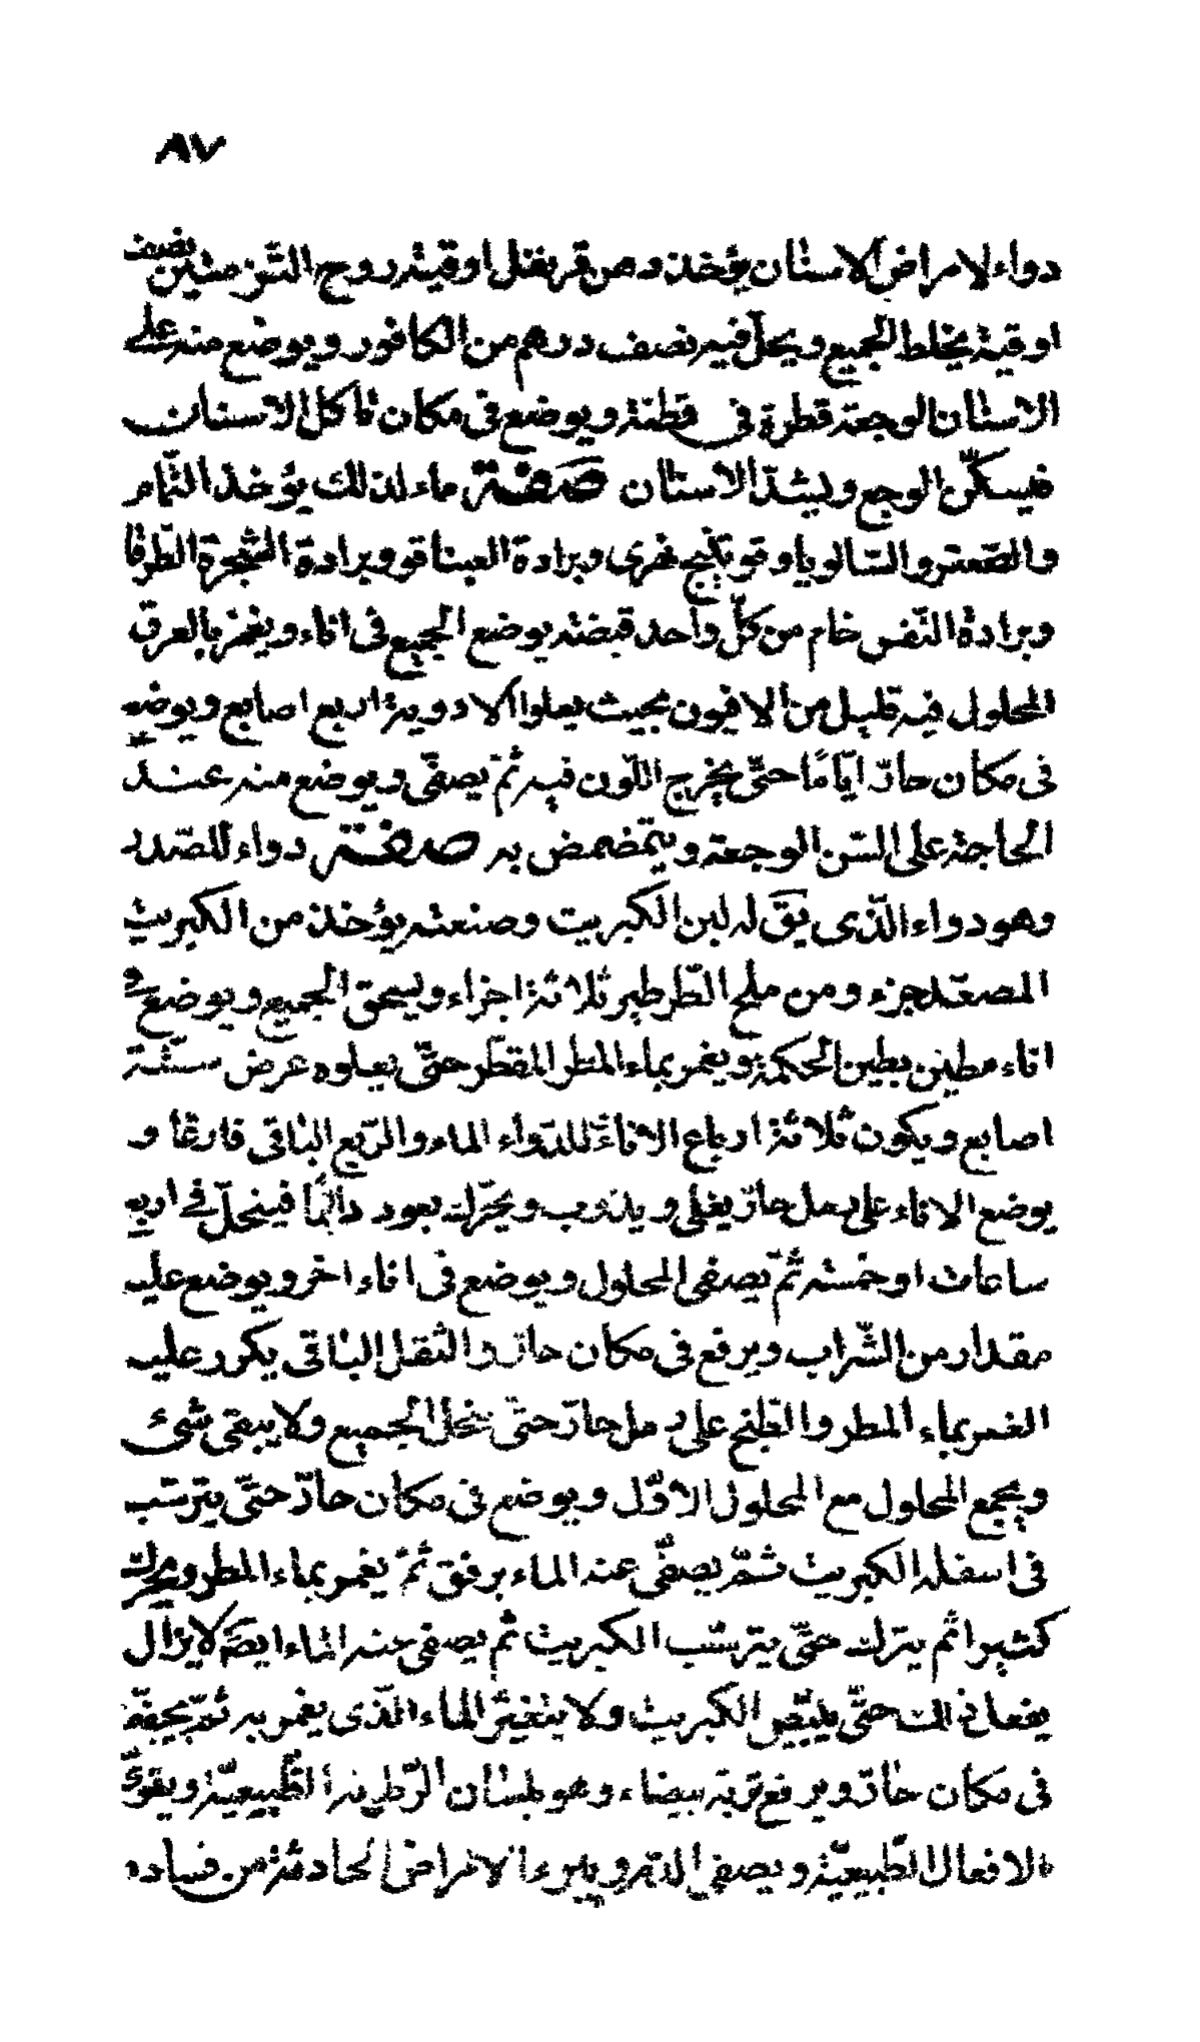 ٨٧
دواء لامراض الاسنان يؤخذ دهن قرنفل اوقية روح التزمنتين نصف
اوقية يخلط الجميع ويحلّ فيه نصف درهم من الكافور ويوضع منه على
الاسنان الوجعة قطرة فى قطنة ويوضع فى مكان تاكل الاسنان
فيسكّن الوجع ويشدّ الاسنان صفة ماء لذلك يؤخذ النّمام
والصّعتر والسّالويا وفوتنج نهرى وبرادة العيناقو وبرادة الشّجرة الطّرفا
وبرادة النّفس خام من كلّ واحد قبضة يوضع الجميع فى اناء ويغمر بالعرق
المحلول فيه قليل من الافيون بحيث يعلوا الادوية اربع اصابع ويوضع
فى مكان حارّ ايّامًا حتّى يخرج اللّون فيه ثمّ يصفّى ويوضع منه عند
الحاجة على السّن الوجعة ويتمضمض به صفة دواء للصّدر
وهو دواء الّذى يقَ له لبن الكبريت وصنعته يؤخذ من الكبريت
المصعّد جزء ومن ملح الطّرطير ثلاثة اجزاء ويسحق الجميع ويوضع فى
اناء مطين بطين الحكمة ويغمر بماء المطر المقطّر حتّى يعلوه عرض ستّة
اصابع ويكون ثلاثة ارباع الاناء للدّواء الماء والرّبع الباقى فارغا و
يوضع الاناء على رمل حارّ يغلى ويذوب ويحرّك بعود دائمًا فينحلّ فى اربع
ساعات او خمسة ثمّ يصفى المحلول ويوضع فى اناء اخر ويوضع عليه
مقدار من الشّراب ويرفع فى مكان حارّ والثقل الباقى يكرر عليه
الغمر بماء المطر والطّبخ على رمل حارّ حتّى ينحل الجميع ولا يبقى شئ
ويجمع المحلول مع المحلول الاوّل ويوضع فى مكان حارّ حتّى يترسّب
فى اسفله الكبريت ثمّ يصفّى عنه الماء برفق ثمّ يغمر بماء المطر ويحرك
كثيرا ثم يترك حتّى يترسّب الكبريت ثم يصفى عنه الماء ايضَا لا يزال
يفعل ذلك حتّى يبيّض الكبريت ولا يتغيّر الماء الّذى يغمر به ثمّ يجفّف
فى مكان حارّ ويرفع تربة بيضاء وهو بلسان الرّطوبة الطّبيعيّة ويقوّى
الافعال الطّبيعيّة ويصفى الدّم ويبرء الامراض الحادثة من فساده